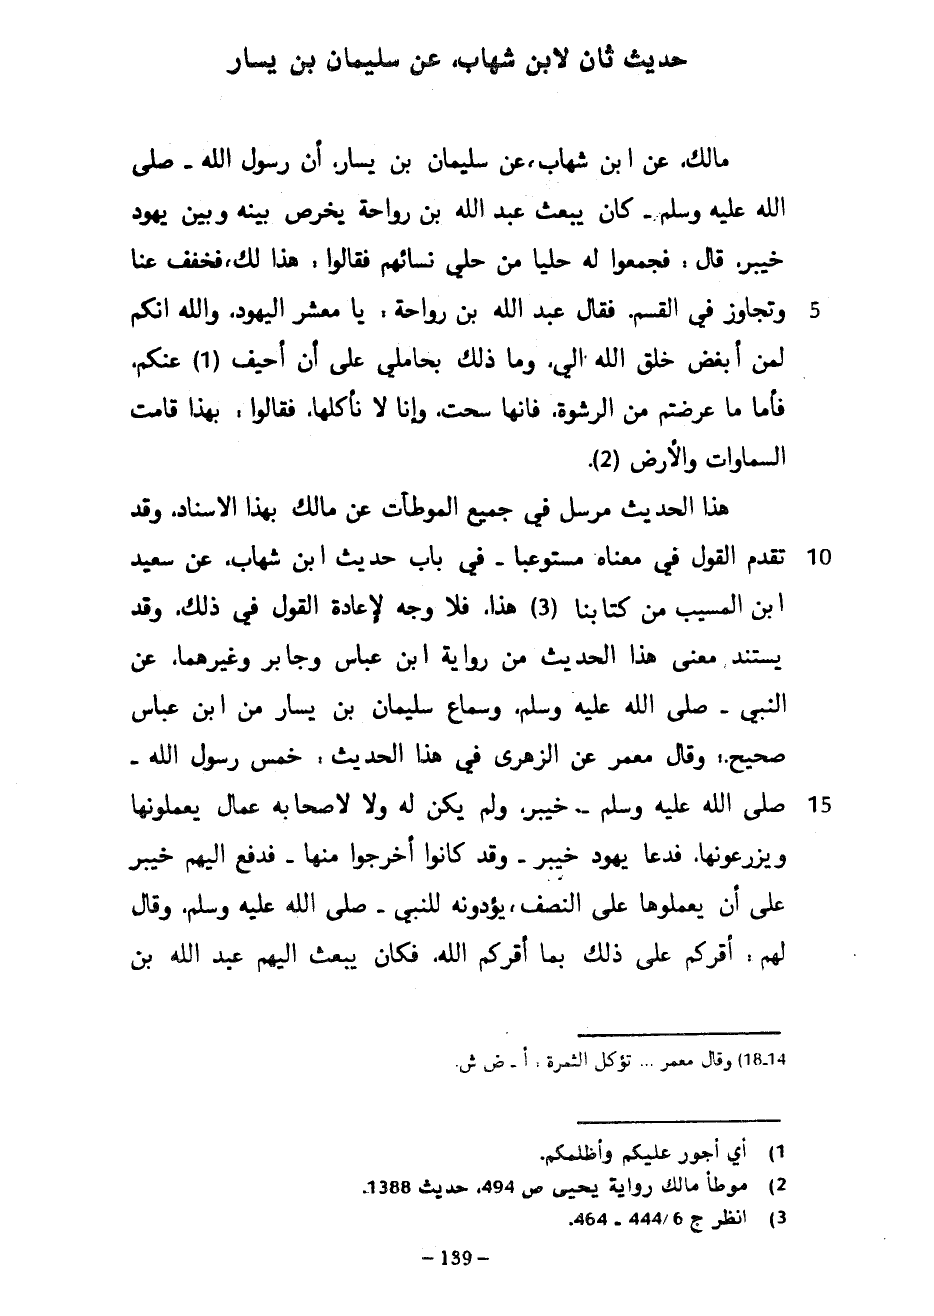 حديث ثان لابن شهاب، عن سليمان بن يسار
مالك، عن ابن شهاب، عن سليمان بن يسار، أن رسول الله ـ صلى
الله عليه وسلم ـ كان يبعث عبد الله بن رواحة يخرص بينه وبين يهود
خيبر، قال : فجمعوا له حليا من حلي نسائهم فقالوا : هذا لك، فخفف عنا
5 وتجاوز في القسم. فقال عبد الله بن رواحة : يا معشر اليهود، والله انكم
لمن أبغض خلق الله الي، وما ذلك بحاملي على أن أحيف (1) عنكم،
فأما ما عرضتم من الرشوة، فانها سحت، وإنا لا نأكلها، فقالوا : بهذا قامت
السماوات والأرض (2).
هذا الحديث مرسل في جميع الموطآت عن مالك بهذا الاسناد، وقد
10 تقدم القول في معناه مستوعبا ـ في باب حديث ابن شهاب، عن سعيد
ابن المسيب من كتابنا (3) هذا، فلا وجه لإعادة القول في ذلك، وقد
يستند معنى هذا الحديث من رواية ابن عباس وجابر وغيرهما، عن
النبي ـ صلى الله عليه وسلم، وسماع سليمان بن يسار من ابن عباس
صحيح.؛ وقال معمر عن الزهرى في هذا الحديث : خمس رسول الله ـ
15 صلى الله عليه وسلم ـ خيبر، ولم يكن له ولا لاصحابه عمال يعملونها
ويزرعونها، فدعا يهود خيبر ـ وقد كانوا أخرجوا منها ـ فدفع اليهم خيبر
على أن يعملوها على النصف، يؤدونه للنبي ـ صلى الله عليه وسلم، وقال
لهم : أقركم على ذلك بما أقركم الله، فكان يبعث اليهم عبد الله بن
14ـ18) وقال معمر ... تؤكل الثمرة : أ ـ ض ش.
1) أي أجور عليكم وأظلمكم.
2) موطأ مالك رواية يحيى ص 494، حديث 1388.
3) انظر ج 6/ 444 ـ 464.
– 139 –